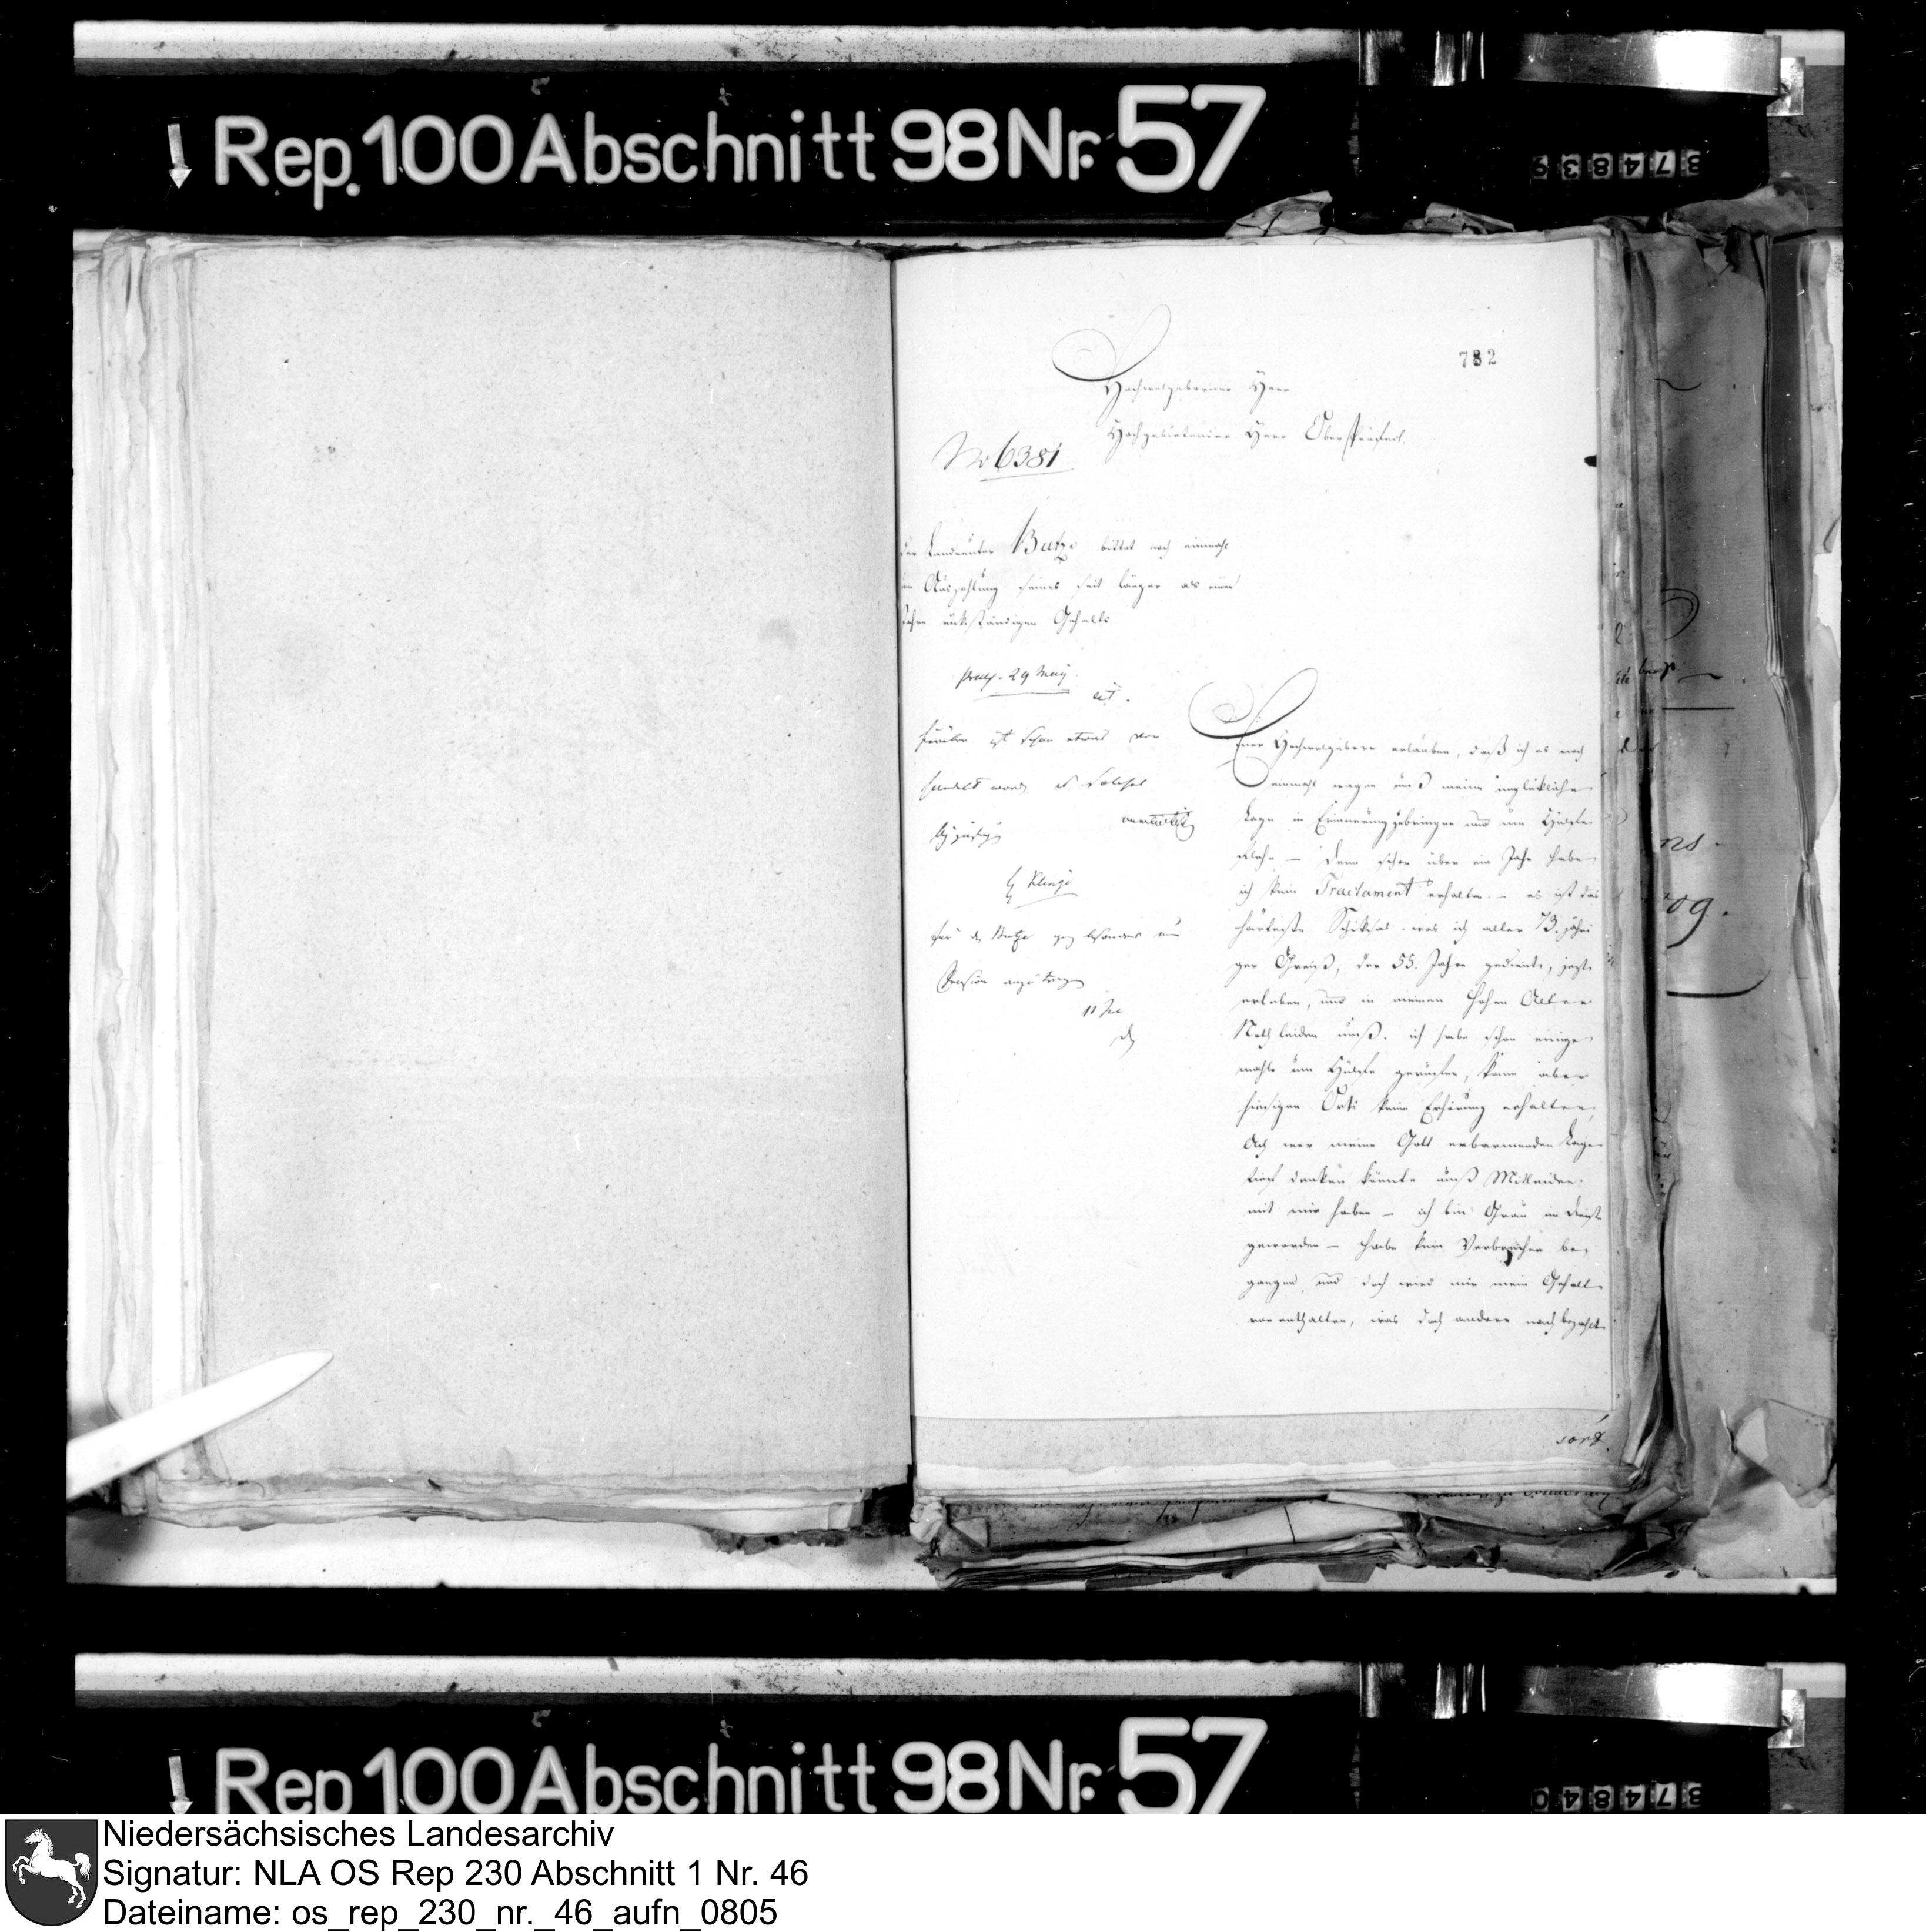 Rep. 100 Abschnitt 98 Nr. 57
37483
782
Hochwolgeborner Herr
Hochgebietender Herr Ober Präfect.
No 6381
Der Landreuter Butze bittet noch einmahl
um Auszahlung seines seit länger als einem
Jahre rückständigen Gehalts
praes. 29 May
hierüber ist schon etwas ver
handelt word.
Klenze
Pension
11 Jun
Euer Hochwolgeborn erlauben, daß ich es noch
einmahl wagen muß meine unglükliche
Lage in Erinnerung zubringen und um Hülfe
flehe — Denn schon über ein Jahr habe
ich kein Tractament erhalten. — es ist das
härteste Schiksal was ich alter 73. jähri
ger Greiß, der 53. Jahre gedient, jezt
erleben, und in meinen hohen Alter
Noth leiden muß. ich habe schon einige
mahle um Hülfe gerufen, kann aber
hiesigen Orts keine Erhörung erhalten,
Ach wer meine Gott erbarmenden Lage
sich denken könnte muß Mitleiden
mit mir haben — ich bin Grau im Dienst
geworden — habe kein Verbrechen be,
gangen, und doch wird mir mein Gehalt
vorenthalten, was doch andere noch bezahlt
fort.
Rep 100 Abschnitt 98 Nr. 57
37484
Niedersächsisches Landesarchiv
Signatur: NLA OS Rep 230 Abschnitt 1 Nr. 46
Dateiname: os_rep_230_nr._46_aufn_0805